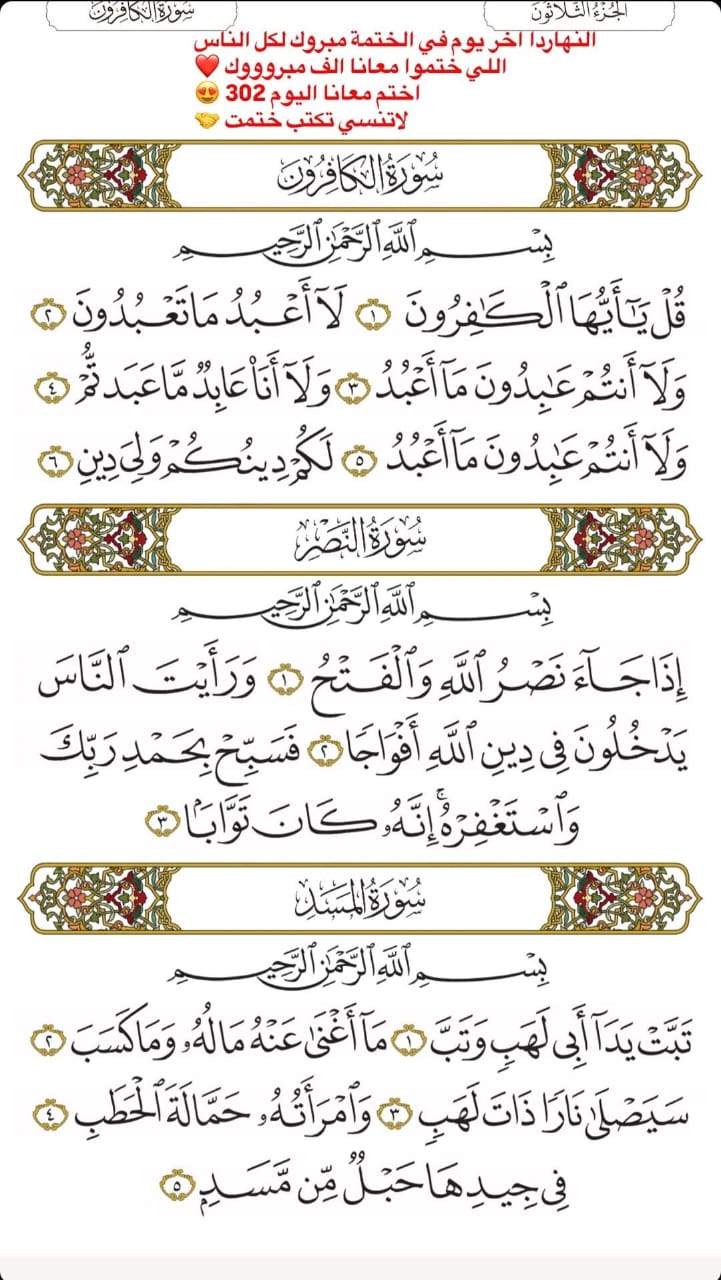 الجزء الثلاثون
سورة الكافرون
النهاردا اخر يوم في الختمة مبروك لكل الناس
اللي ختموا معانا الف مبروووك ❤️
اختم معانا اليوم 302 😍
لاتنسي تكتب ختمت 🤝
سُورَةُ الكَافِرُونَ
بِسْمِ ٱللَّهِ ٱلرَّحْمَٰنِ ٱلرَّحِيمِ
قُلْ يَٰٓأَيُّهَا ٱلْكَٰفِرُونَ ١ لَآ أَعْبُدُ مَا تَعْبُدُونَ ٢
وَلَآ أَنتُمْ عَٰبِدُونَ مَآ أَعْبُدُ ٣ وَلَآ أَنَا۠ عَابِدٌ مَّا عَبَدتُّمْ ٤
وَلَآ أَنتُمْ عَٰبِدُونَ مَآ أَعْبُدُ ٥ لَكُمْ دِينُكُمْ وَلِىَ دِينِ ٦
سُورَةُ النَّصْرِ
بِسْمِ ٱللَّهِ ٱلرَّحْمَٰنِ ٱلرَّحِيمِ
إِذَا جَآءَ نَصْرُ ٱللَّهِ وَٱلْفَتْحُ ١ وَرَأَيْتَ ٱلنَّاسَ
يَدْخُلُونَ فِى دِينِ ٱللَّهِ أَفْوَاجًا ٢ فَسَبِّحْ بِحَمْدِ رَبِّكَ
وَٱسْتَغْفِرْهُ ۚ إِنَّهُۥ كَانَ تَوَّابًۢا ٣
سُورَةُ المَسَدِ
بِسْمِ ٱللَّهِ ٱلرَّحْمَٰنِ ٱلرَّحِيمِ
تَبَّتْ يَدَآ أَبِى لَهَبٍ وَتَبَّ ١ مَآ أَغْنَىٰ عَنْهُ مَالُهُۥ وَمَا كَسَبَ ٢
سَيَصْلَىٰ نَارًا ذَاتَ لَهَبٍ ٣ وَٱمْرَأَتُهُۥ حَمَّالَةَ ٱلْحَطَبِ ٤
فِى جِيدِهَا حَبْلٌ مِّن مَّسَدٍۭ ٥